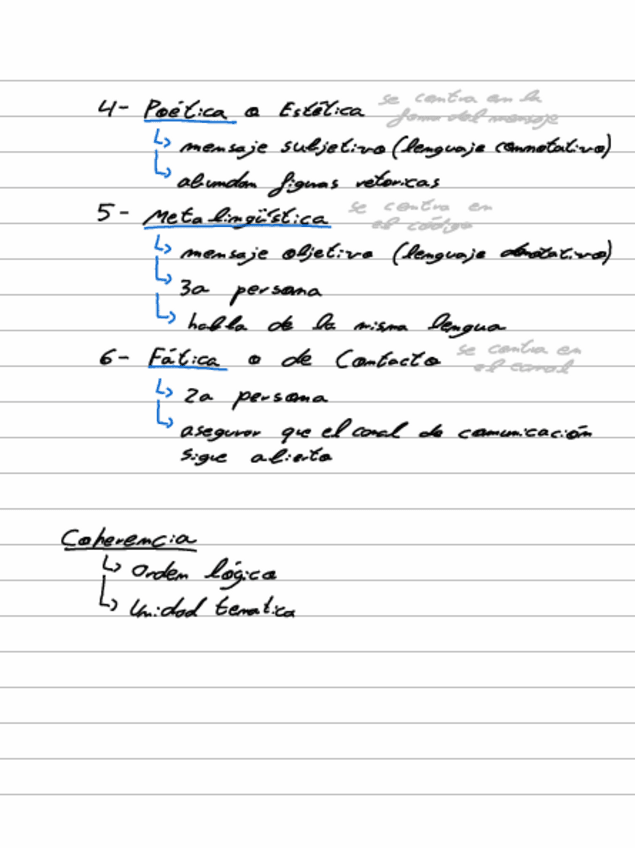 4- Poética o Estética se centra en la
forma del mensaje
↳ mensaje subjetivo (lenguaje connotativo)
↳ abundan figuras retoricas
5- Metalingüística se centra en
el código
↳ mensaje objetivo (lenguaje denotativo)
↳ 3a persona
↳ habla de la misma lengua
6- Fática o de Contacto se centra en
el canal
↳ 2a persona
↳ asegurar que el canal de comunicación
sigue abierto
Coherencia
↳ Orden lógico
↳ Unidad tematica